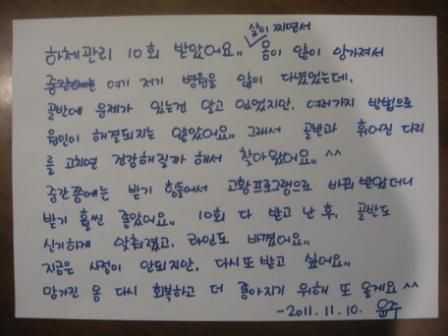 살이 찌면서
하체관리 10회 받았어요.. 몸이 많이 망가져서
여기 저기 병원을 많이 다녔었는데,
골반에 문제가 있는건 알고 있었지만, 여러가지 방법으로
원인이 해결되지는 않았어요.. 그래서 골반과 휘어진 다리
를 고치면 건강해질까 해서 찾아왔어요. ^^
중간쯤에는 받기 힘들어서 고황프로그램으로 바꿔 받았더니
받기 훨씬 좋았어요.. 10회 다 받고 난 후, 골반도
신기하게 맞춰졌고, 라인도 바꼈어요..
지금은 사정이 안되지만, 다시 또 받고 싶어요..
망가진 몸 다시 회복하고 더 좋아지기 위해 또 올게요 ^^
- 2011. 11. 10. 윤주